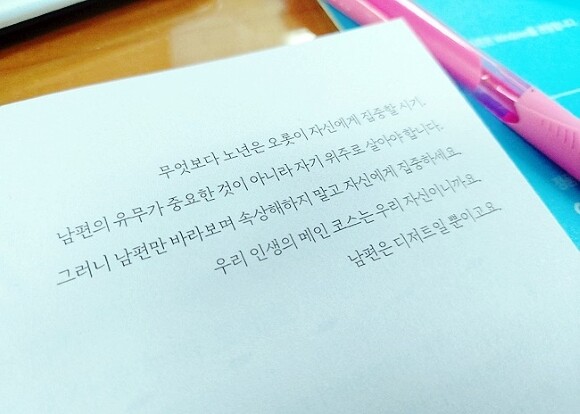 무엇보다 노년은 오롯이 자신에게 집중할 시기.
남편의 유무가 중요한 것이 아니라 자기 위주로 살아야 합니다.
그러니 남편만 바라보며 속상해하지 말고 자신에게 집중하세요.
우리 인생의 메인 코스는 우리 자신이니까요.
남편은 디저트일 뿐이고요.